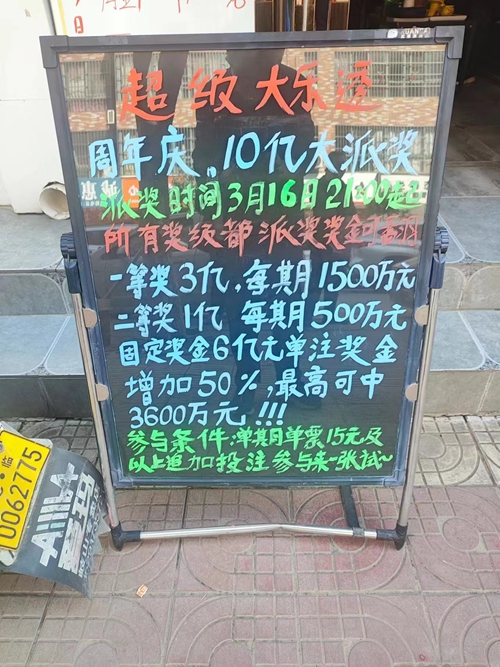 超级大乐透
周年庆，10亿大派奖
派奖时间3月16日21:00起
所有奖级都派奖奖金可翻
一等奖3亿，每期1500万元
二等奖1亿 每期500万元
固定奖金6亿元单注奖金
增加50%，最高可中
3600万元!!!
参与条件:单期单票15元及
以上追加投注参与来一张试~
0062775